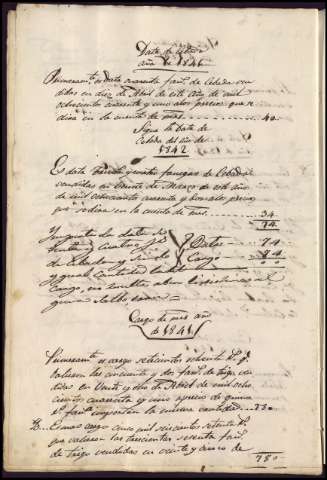 Data de Cebada
año de 1841
Primeramte es data cuarenta fans. de Cebada ven
didas en diez de Abril de este año de mil
ochocientos cuarenta y uno alos precios que se
dira en la cuenta de mrs. 40
Sigue la Data de
Cebada del año de
1842
Es data treinta y cuatro fanegas de Cebada
vendidas en veinte de Marzo de este año
de mil ochocientos cuarenta y dos alos precios
que se dira en la cuenta de mrs. 34
74
Y junta la data de
Data 74
de Cebada y siendo Cargo 74
y igual Cantidad la del 00
Cargo, no resulta
Cargo de mrs año
de 1841
Primeramte es cargo setecientos ochenta Rs. q.
valieron las cincuenta y dos fans. de trigo ven
didas en veinte y ocho de Abril de mil ocho
cientos cuarenta y uno aprecio de quince
Rs. fana. importan la misma cantidad 780
Es mas cargo cinco mil seiscientos setenta Rs.
que valieron las trescientas setenta fans.
de trigo vendidas en veinte y cinco de
780